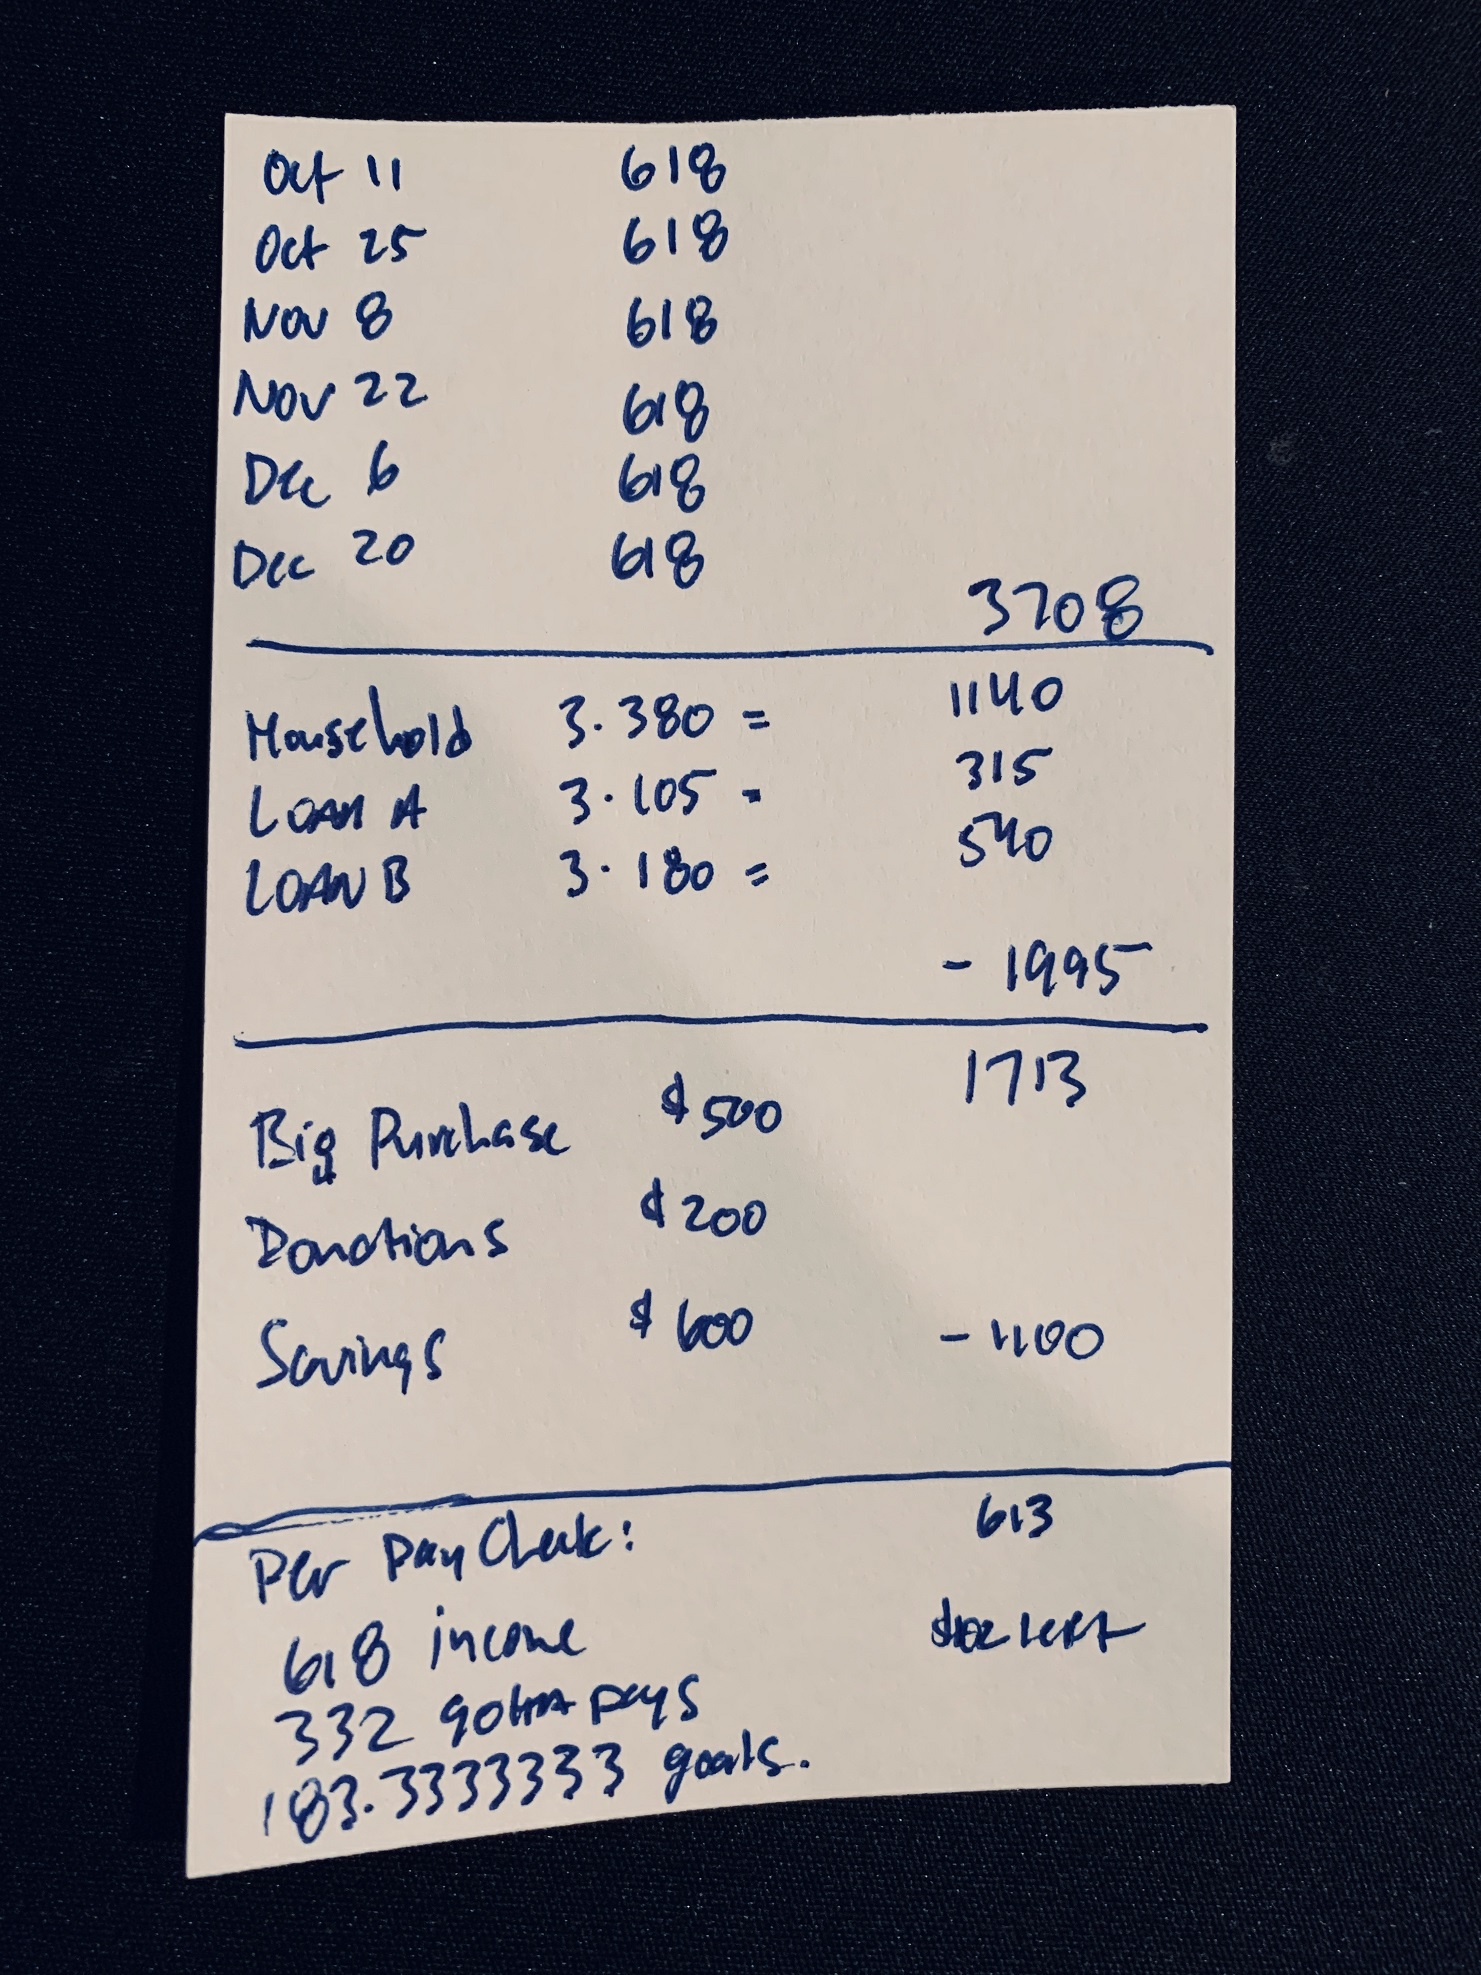 Oct 11 618
Oct 25 618
Nov 8 618
Nov 22 618
Dec 6 618
Dec 20 618
3708
Household 3·380 = 1140
LOAN A 3·105 = 315
LOAN B 3·180 = 540
- 1995
1713
Big Purchase $500
Donations $200
Savings $600 - 1100
613
Per Pay Check:
618 income $102 left
332 gotta pays
183.3333333 goals.